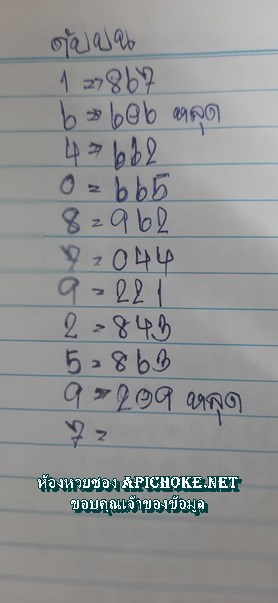 ดับบน
1 => 867
6 => 606 หลุด
4 => 662
0 = 665
8 = 962
7 = 044
9 = 221
2 = 843
5 = 863
9 => 209 หลุด
7 =
ห้องหวยซอง APICHOKE.NET
ขอบคุณเจ้าของข้อมูล